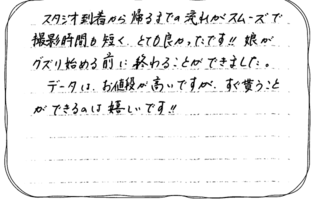 スタジオ到着から帰るまでの流れがスムーズで
撮影時間も短く、とても良かったです!! 娘が
グズリ始める前に終わることができました。
データは、お値段が高いですが、すぐ貰うこと
ができるのは嬉しいです!!